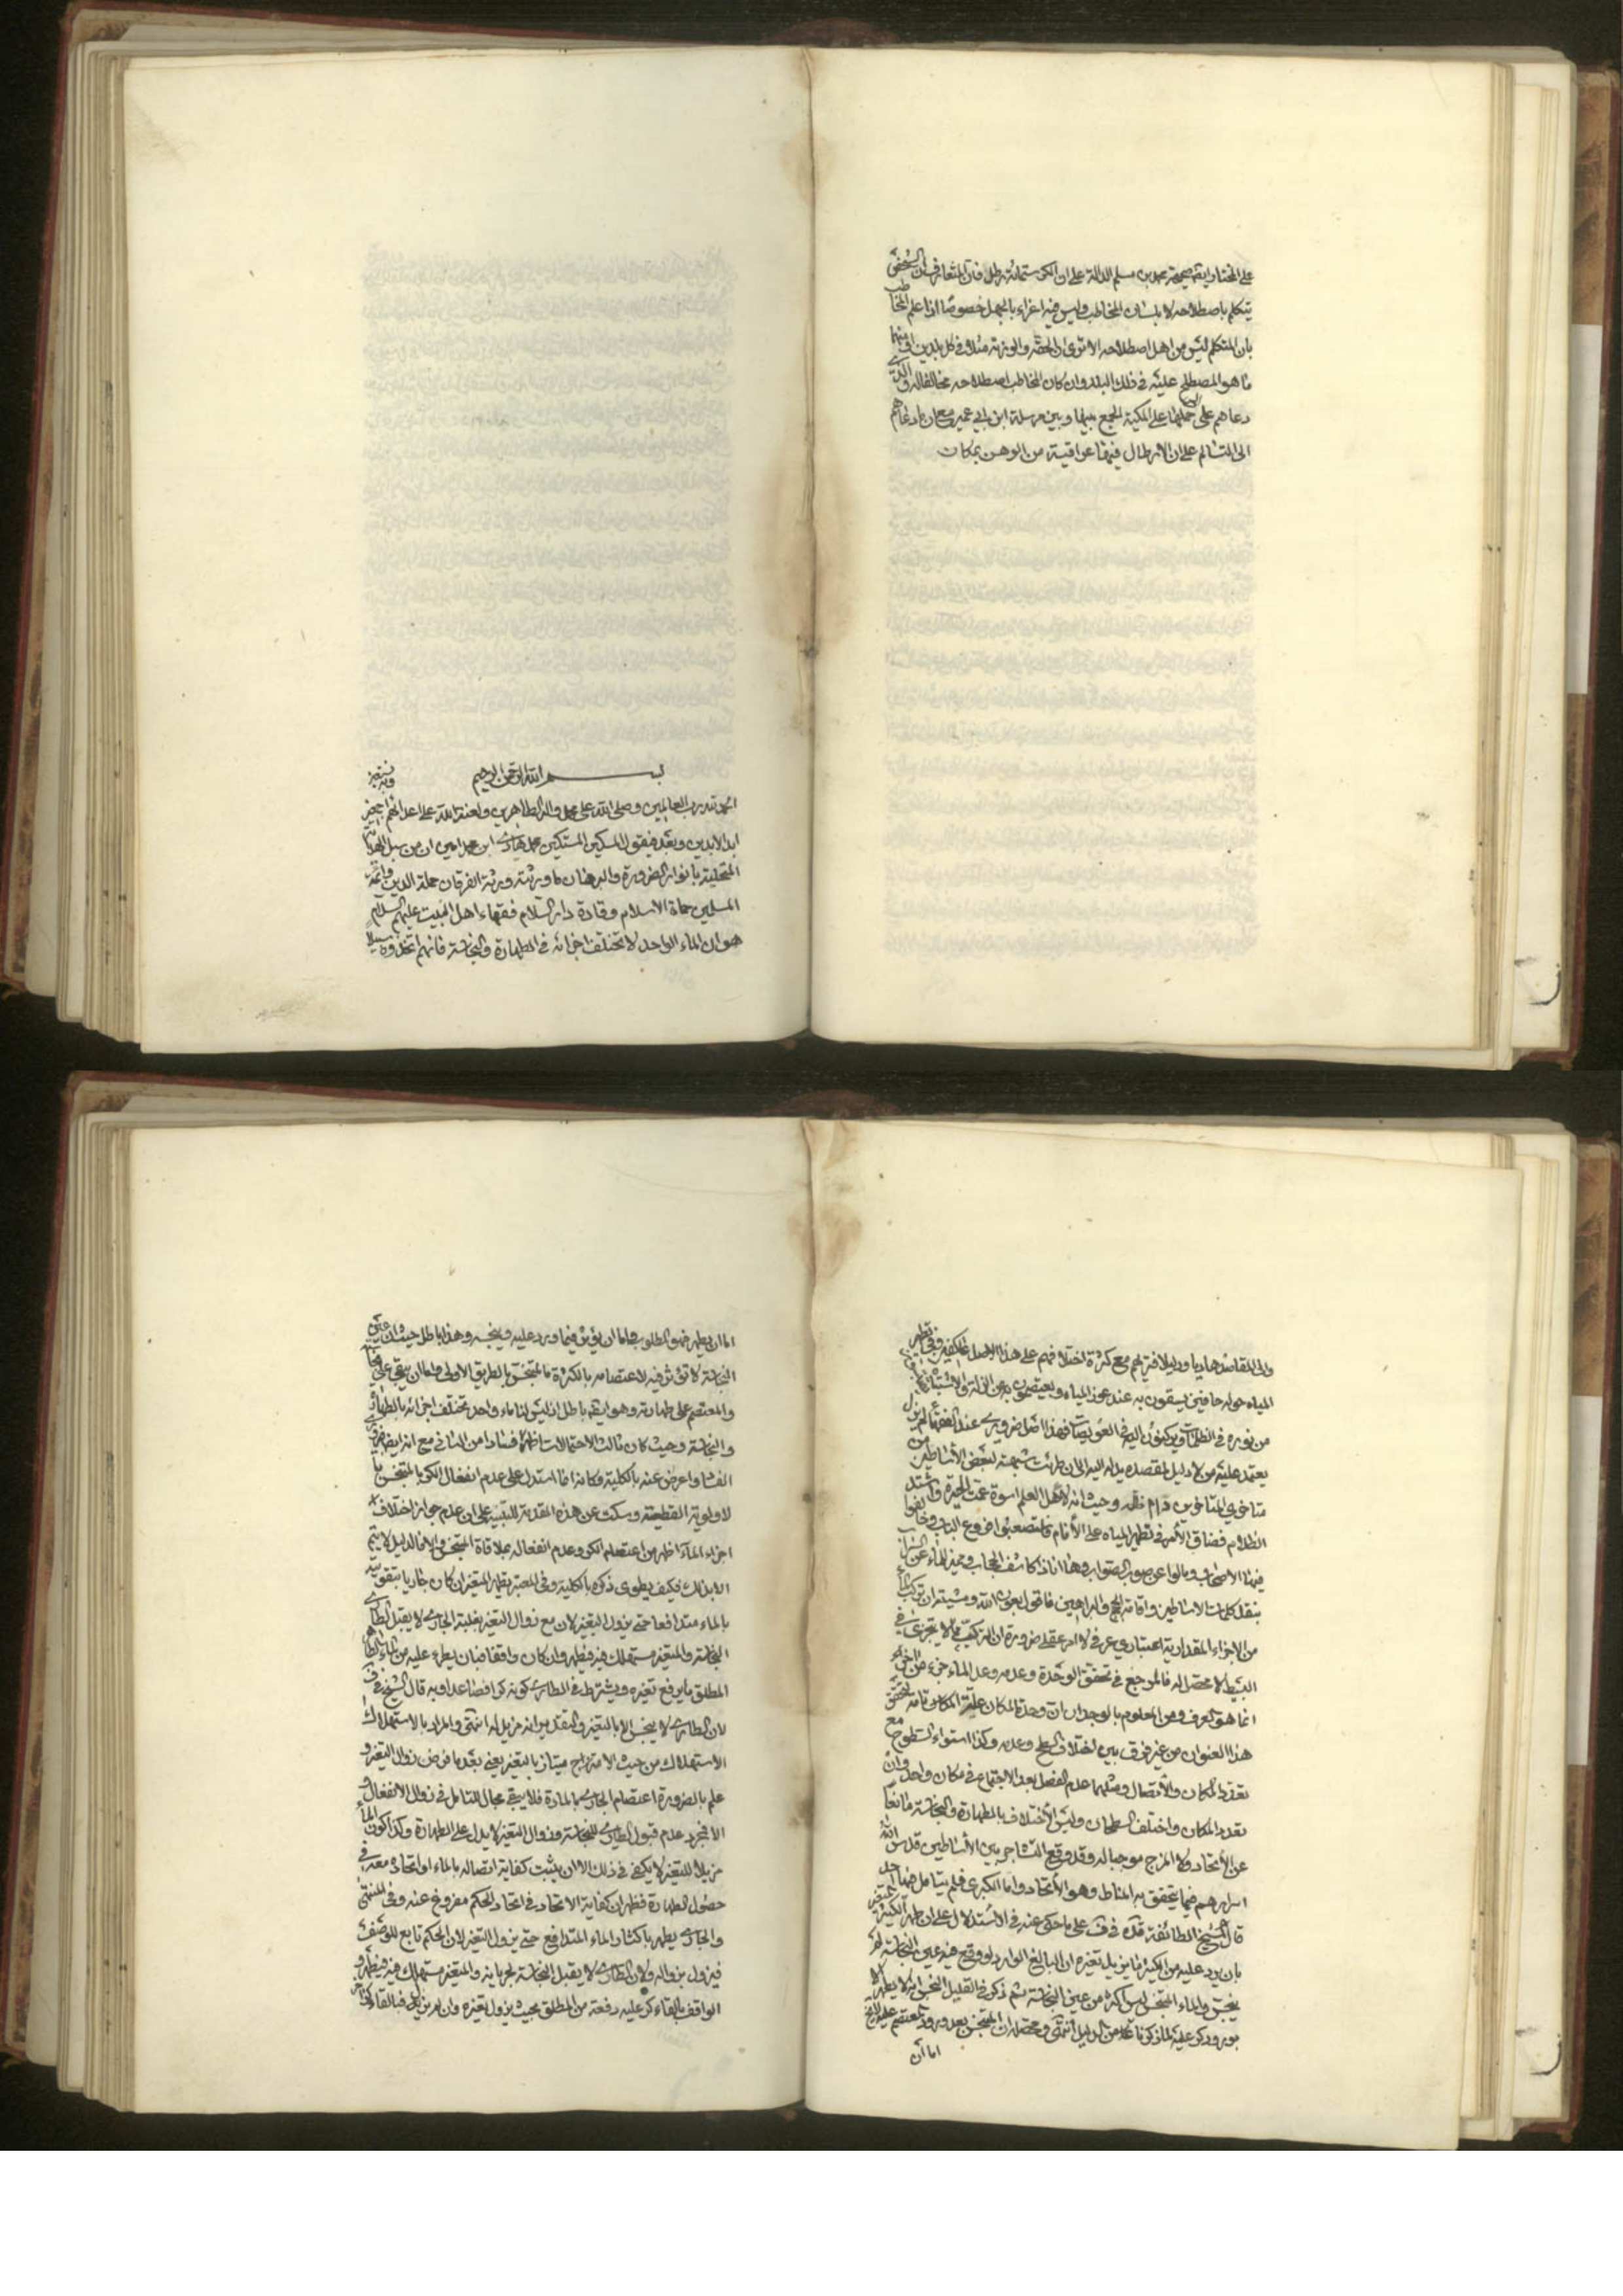 على المختار ايضا صحيحة محمد بن مسلم الدالة على ان الكر ستمائة رطل فان المتعارف ان الشخص
يتكلم باصطلاحه لا بلسان المخاطب وليس فيه اغراء بالجهل خصوصا اذا علم المخاطب
بان المتكلم ليس من اهل اصطلاحه الا ترى ان الحقة والوزنة مثلا في كل بلد يراد منها
ما هو المصطلح عليه في ذلك البلد وان كان المخاطب اصطلاحه مخالفا له والذي
دعاهم على حملها على المكية الجمع بينها وبين مرسلة ابن ابي عمير مع ان ما دعاهم
الى التسالم على ان الارطال فيها عراقية من الوهن بمكان
بسم الله الرحمن الرحيم وبه نستعين
الحمد لله رب العالمين وصلى الله على محمد واله الطاهرين ولعنة الله على اعدائهم اجمعين
ابد الابدين وبعد فيقول المسكين المستكين محمد هادي ابن محمد امين ان من سبل الهداية
المتجلية بانوار الضرورة والبرهان ما ورثته ورثة الفرقان حملة الدين وائمة
المسلمين حماة الاسلام وقادة دار السلام فقهاء اهل البيت عليهم السلام
هو ان الماء الواحد لا تختلف اجزائه في الطهارة والنجاسة فانهم اتخذوه سبيلا
والى المقاصد هاديا ودليلا فتريهم مع كثرة اختلافهم على هذا الاصل عاكفين وفي تطهير
المياه حوله حافين يستقون به عند عوز المياه ويعتصمون به عن الزلة والاشتباه
من نوره في الظلمات ويركنون اليه في العويصات فهذا اصل ضروري عند الفقهاء لم يزل
يعتمد عليه من لا دليل لمقصده يدله اليه الى ان طرئت شبهة لبعض الاساطين من
متاخري المتاخرين دام ظله وحيث انه لاهل العلم اسوة عمت الحيرة واشتد
الظلام فضاق الامر في تطهير المياه على الانام فاستصعبوا فروع الباب وخالفوا
فيها الاصحاب ومالوا عن صوب الصواب وها انا ذا كاشف الحجاب ومميز الماء عن السراب
بنقل كلمات الاساطين واقامة الحجج والبراهين فاقول بعون الله ومشيته ان تركب الماء
من الاجزاء المقدارية اعتباري عرفي لا امر عقلي ضرورة ان التركب مما لا يتجزى في
البسيط لا محصل له فالمرجع في تحقق الوحدة وعدمه وعد الماء جزء من اجزاء
انما هو العرف ومن المعلوم بالوجدان ان وحدة المكان علة تامة لتحقق
هذا العنوان من غير فرق بين اختلاف السطح وعدمه وكذا استواء السطوح مع
تعدد المكان والاتصال ومثلهما عدم الفصل بعد الاجتماع في مكان واحد وان
تعدد المكان واختلف السطحان وليس الاختلاف بالطهارة والنجاسة مانعا
عن الاتحاد ولا المزج موجبا له وقد وقع التشاجر بين الاساطين قدس الله
اسرارهم فيما يتحقق به المناط وهو الاتحاد واما الكبرى فلم يتامل فيها احد
قال الشيخ الطائفة قده في ف على ما حكى عنه في الاستدلال على ان طهر الكثير المتغير
بان يرد عليه من الكثير ما يزيل تغيره ان البالغ الوارد لو وقع فيه عين النجاسة لم
ينجس والماء المتنجس ليس باكثر من عين النجاسة ثم ذكر في القليل النجس انه لا يطهر الا
بورود كر عليه لما ذكرنا من الدليل انتهى ومحصله ان المتنجس بعد ورود المعتصم عليه
اما ان
اما ان يطهر فهو المطلوب واما ان يؤثر فيما ورد عليه وينجسه وهذا باطل حيث ان عين
النجاسة لا تؤثر فيه لاعتصامه بالكثرة فالمتنجس بالطريق الاولى واما ان يبقى على نجاسته
والمعتصم على طهارته وهو ايضا باطل اذ ليس لنا ماء واحد تختلف اجزائه بالطهارة
والنجاسة وحيث كان ثالث الاحتمالات اظهر فسادا من الثاني مع انه ايضا ضروري
الفساد اعرض عنه بالكلية فكانه قد استدل على عدم انفعال الكر بالمتنجس بالا
لاولوية القطعية وسكت عن هذه المقدمة للتنبيه على ان عدم جواز اختلاف
اجزاء الماء اظهر من اعتصام الكر وعدم انفعاله بملاقاة المتنجس والا فالدليل لا يتم
الا بذلك فكيف يطوى ذكره بالكلية وفي المعتبر يطهر المتغير ان كان جاريا بتقويته
بالماء متدافعا حتى يزول التغير لان مع زوال التغير بغلبة الجاري لا يقبل الطاري
النجاسة والمتغير مستهلك فيه فيطهر وان كان واقفا فبان يطرء عليه من الماء الطاهر
المطلق ما يرفع تغيره ويشترط في الطاري كونه كرا فصاعدا وبه قال الشيخ في ف
لان الطاري لا ينجس الا بالتغير والتقدير انه مزيل له انتهى والمراد بالاستهلاك
الاستهلاك من حيث الامتزاج ممتاز بالتغير يعني بعد ما فرض زوال التغير و
علم بالضرورة اعتصام الجاري بالمادة فلا يبقى مجال للتامل في زوال الانفعال و
الا فمجرد عدم قبول الطاري للنجاسة وزوال التغير لا يدل على الطهارة وكذا كون الماء
مزيلا للتغير لا يكفي في ذلك الا ان يثبت كفاية اتصاله بالماء او اتحاده معه في
حصول الطهارة فظهر ان كفاية الاتحاد في اتحاد الحكم مفروغ عنه وفي المنتهى
والجاري يطهر باكثار الماء المتدافع حتى يزول التغير لان الحكم تابع للوصف
فيزول بزواله ولان الطاري لا يقبل النجاسة لجريانه والمتغير مستهلك فيه فيطهر و
الواقف بالقاء كر عليه دفعة من المطلق بحيث يزول تغيره وان لم يزل فبالقاء كر اخر